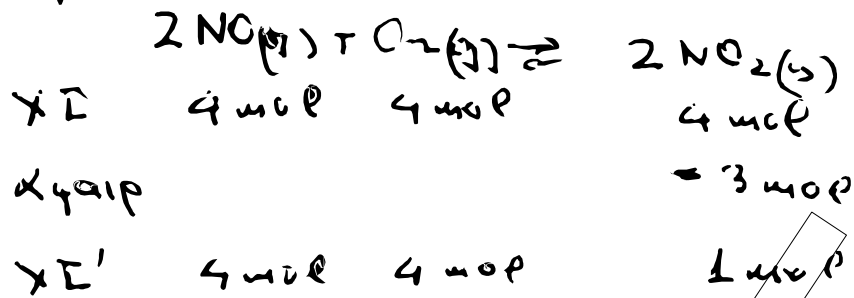 2 NO(g) + O2(g) ⇌ 2 NO2(g)
χΙ 4 mol 4 mol 4 mol
αφαιρ - 3 mol
χΙ' 4 mol 4 mol 1 mol